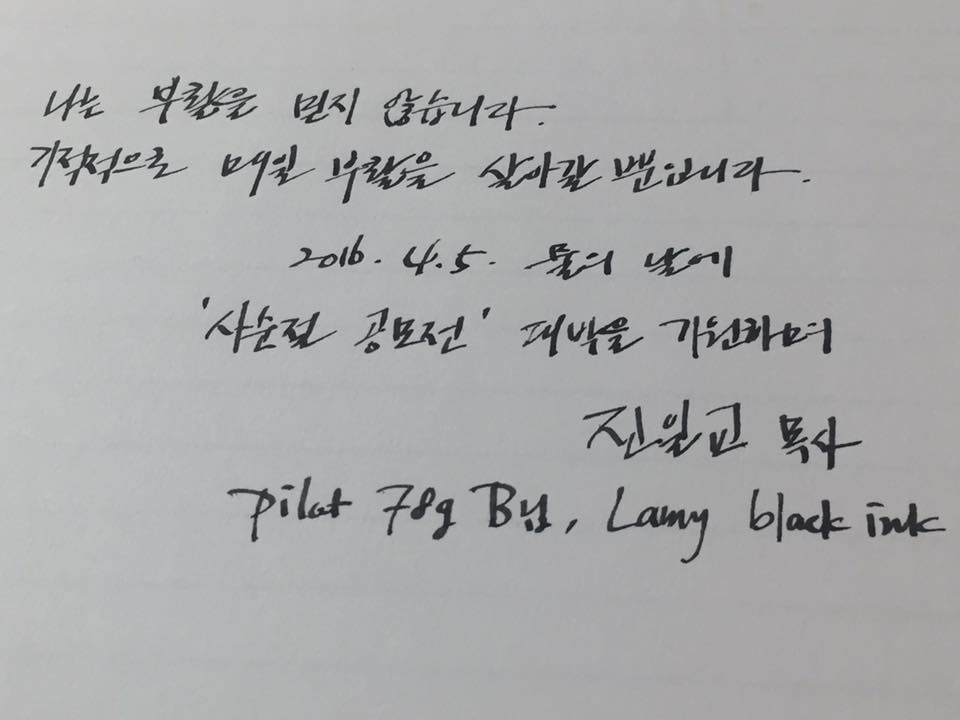 나는 부활을 믿지 않습니다.
기적적으로 매일 부활을 살아갈 뿐입니다.
2016. 4. 5. 물의 날에
'사순절 공모전' 대박을 기원하며
진일교 목사
pilot 78g B닙, Lamy black ink